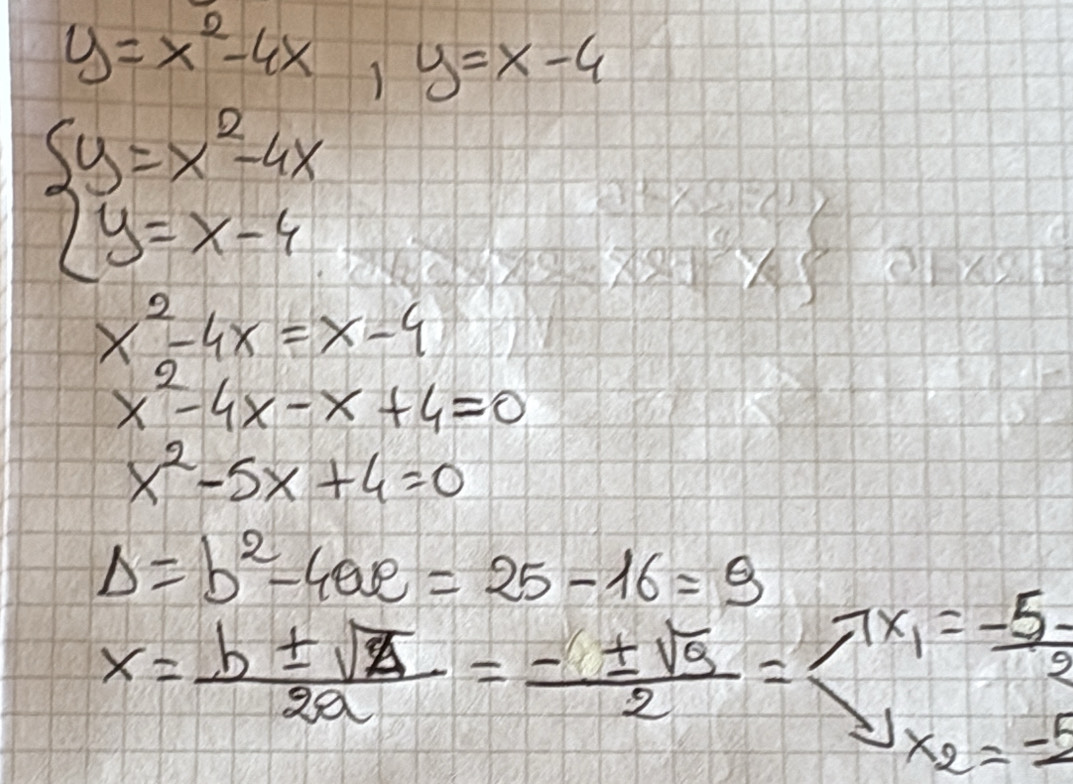 y=x²-4x , y=x-4
{y=x²-4x
{y=x-4
x²-4x=x-4
x²-4x-x+4=0
x²-5x+4=0
Δ=b²-4ac=25-16=9
x=(b±√Δ)/2a=(-±√9)/2= ↗x₁=(-5-)/2
↘x₂=-5